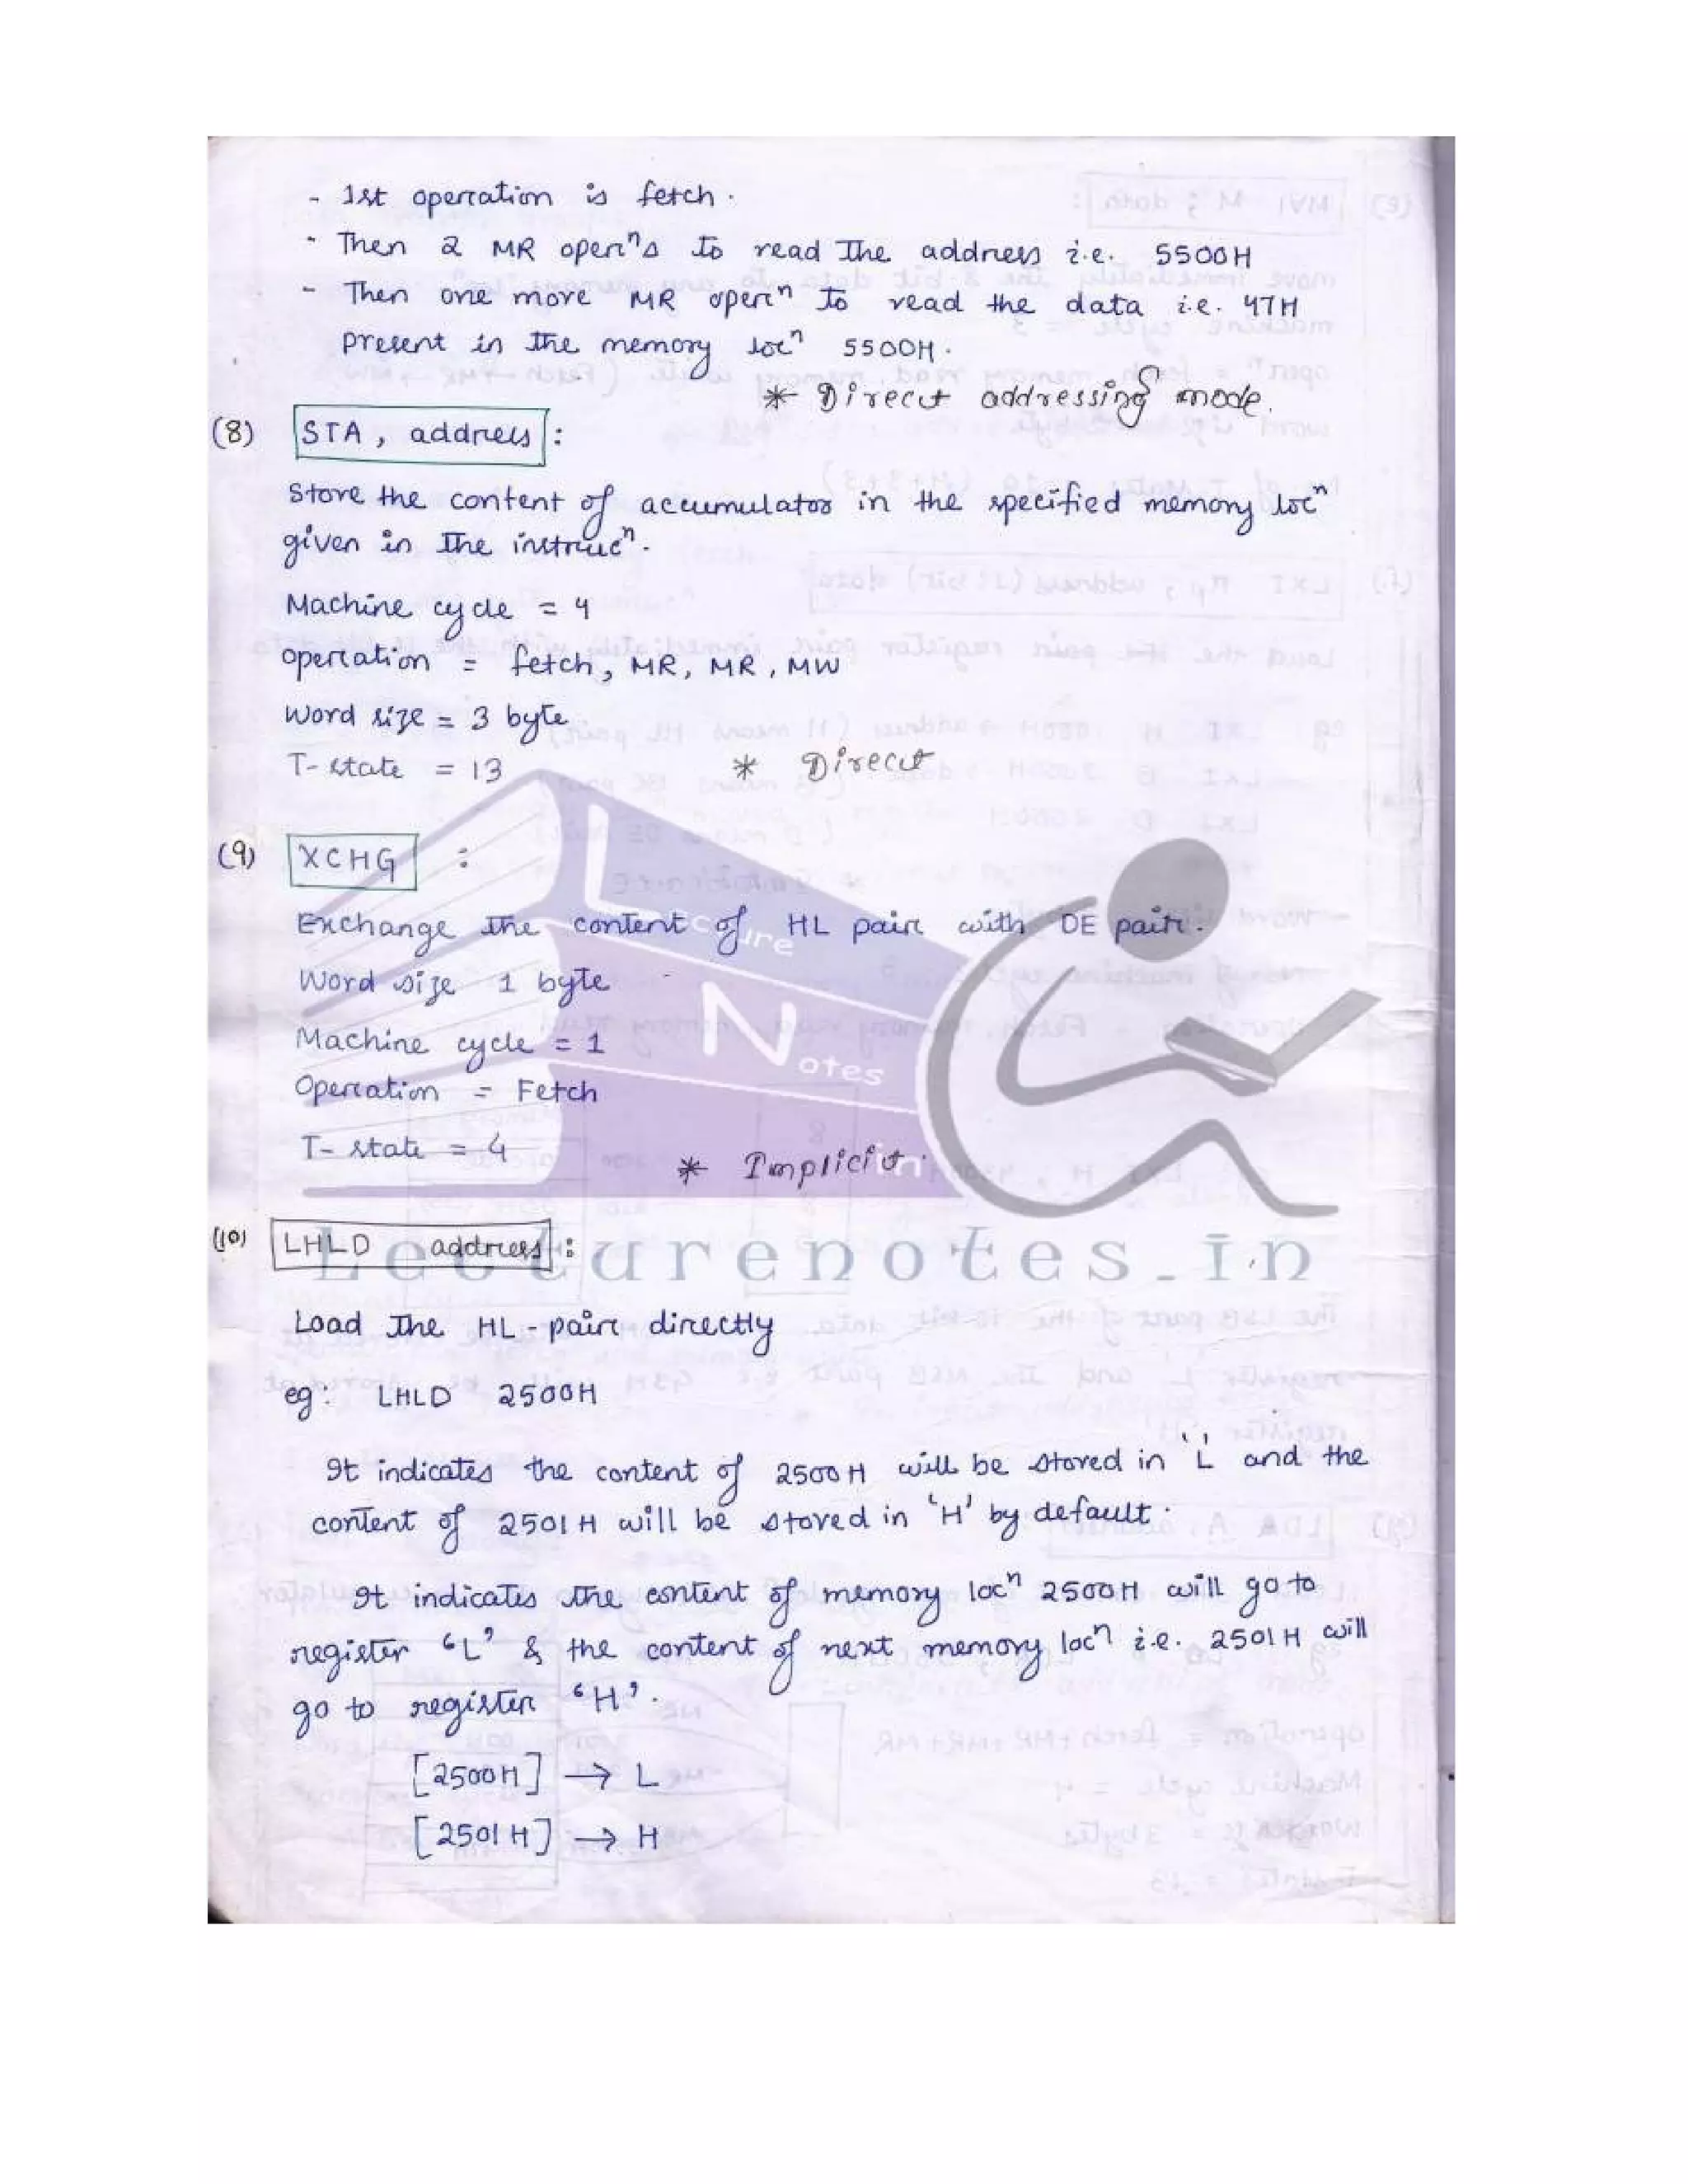 - 1st operation is fetch.
- Then 2 MR opernⁿs to read the address i.e. 5500H
- Then one more MR operⁿ to read the data i.e. 47H
present in the memory locⁿ 5500H.
* Direct addressing mode.
(8) STA, address :
Store the content of accumulator in the specified memory locⁿ
given in the instrucⁿ.
Machine cycle = 4
operation = fetch, MR, MR, MW
Word size = 3 byte
T-state = 13 * Direct
(9) XCHG :
Exchange the content of HL pair with DE pair.
Word size 1 byte
Machine cycle = 1
Operation = Fetch
T-state = 4 * Implicit.
Lecture
Notes
in
Lecturenotes.in
(10) LHLD address :
Load the HL-pair directly
eg: LHLD 2500H
It indicates the content of 2500H will be stored in 'L' and the
content of 2501H will be stored in 'H' by default.
It indicates the content of memory locⁿ 2500H will go to
register 'L' & the content of next memory locⁿ i.e. 2501H will
go to register 'H'.
[2500H] → L
[2501H] → H